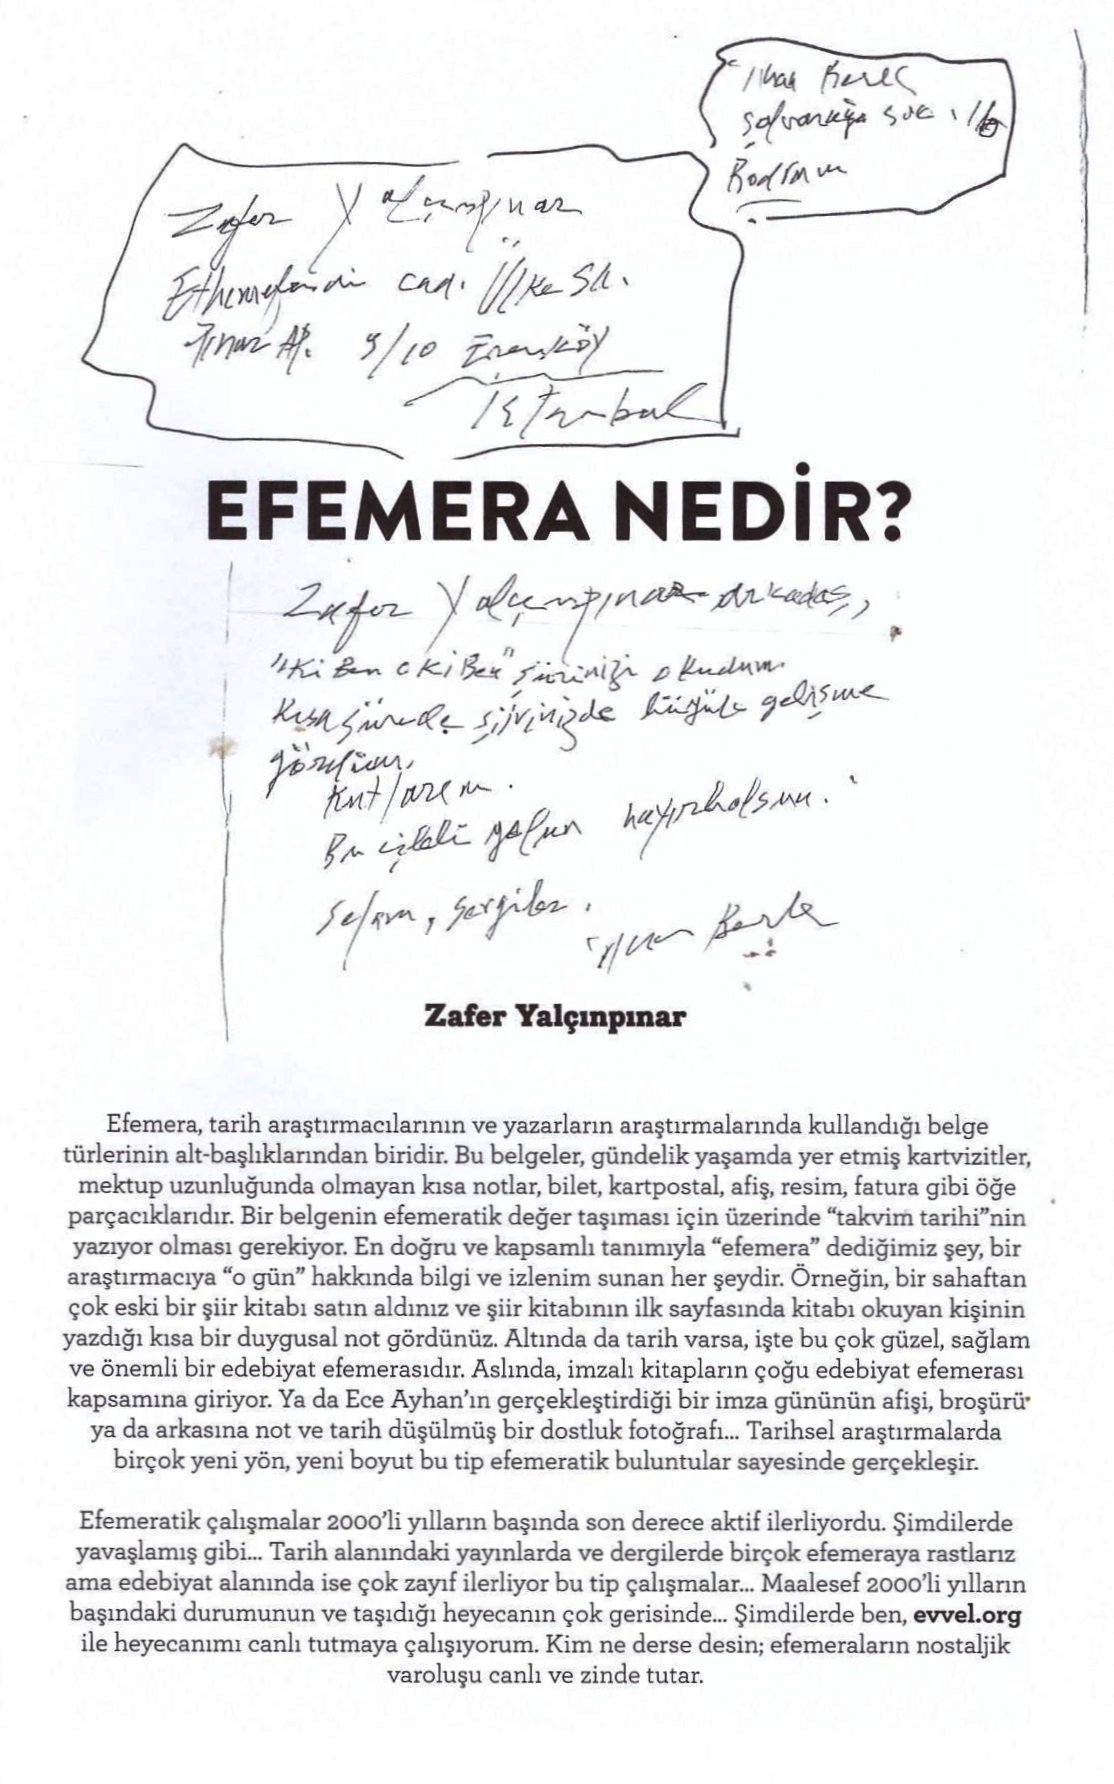 İlhan Berk
Şalvarağa Sok. 16
Bodrum
Zafer Yalçınpınar
Ethemefendi cad. Ülke Sk.
Pınar Ap. 9/10 Erenköy
İstanbul
EFEMERA NEDİR?
Zafer Yalçınpınar arkadaş,
"İki Ben o ki Ben" şiirinizi okudum.
Kısa sürede şiirinizde büyük gelişme
gördüm.
Kutlarım.
Bu çileli yolun hayırlı olsun.
Selam, sevgiler.
İlhan Berk
Zafer Yalçınpınar
Efemera, tarih araştırmacılarının ve yazarların araştırmalarında kullandığı belge
türlerinin alt-başlıklarından biridir. Bu belgeler, gündelik yaşamda yer etmiş kartvizitler,
mektup uzunluğunda olmayan kısa notlar, bilet, kartpostal, afiş, resim, fatura gibi öğe
parçacıklarıdır. Bir belgenin efemeratik değer taşıması için üzerinde “takvim tarihi”nin
yazıyor olması gerekiyor. En doğru ve kapsamlı tanımıyla “efemera” dediğimiz şey, bir
araştırmacıya “o gün” hakkında bilgi ve izlenim sunan her şeydir. Örneğin, bir sahaftan
çok eski bir şiir kitabı satın aldınız ve şiir kitabının ilk sayfasında kitabı okuyan kişinin
yazdığı kısa bir duygusal not gördünüz. Altında da tarih varsa, işte bu çok güzel, sağlam
ve önemli bir edebiyat efemerasıdır. Aslında, imzalı kitapların çoğu edebiyat efemerası
kapsamına giriyor. Ya da Ece Ayhan’ın gerçekleştirdiği bir imza gününün afişi, broşürü
ya da arkasına not ve tarih düşülmüş bir dostluk fotoğrafı... Tarihsel araştırmalarda
birçok yeni yön, yeni boyut bu tip efemeratik buluntular sayesinde gerçekleşir.
Efemeratik çalışmalar 2000’li yılların başında son derece aktif ilerliyordu. Şimdilerde
yavaşlamış gibi... Tarih alanındaki yayınlarda ve dergilerde birçok efemeraya rastlarız
ama edebiyat alanında ise çok zayıf ilerliyor bu tip çalışmalar... Maalesef 2000’li yılların
başındaki durumunun ve taşıdığı heyecanın çok gerisinde... Şimdilerde ben, evvel.org
ile heyecanımı canlı tutmaya çalışıyorum. Kim ne derse desin; efemeraların nostaljik
varoluşu canlı ve zinde tutar.